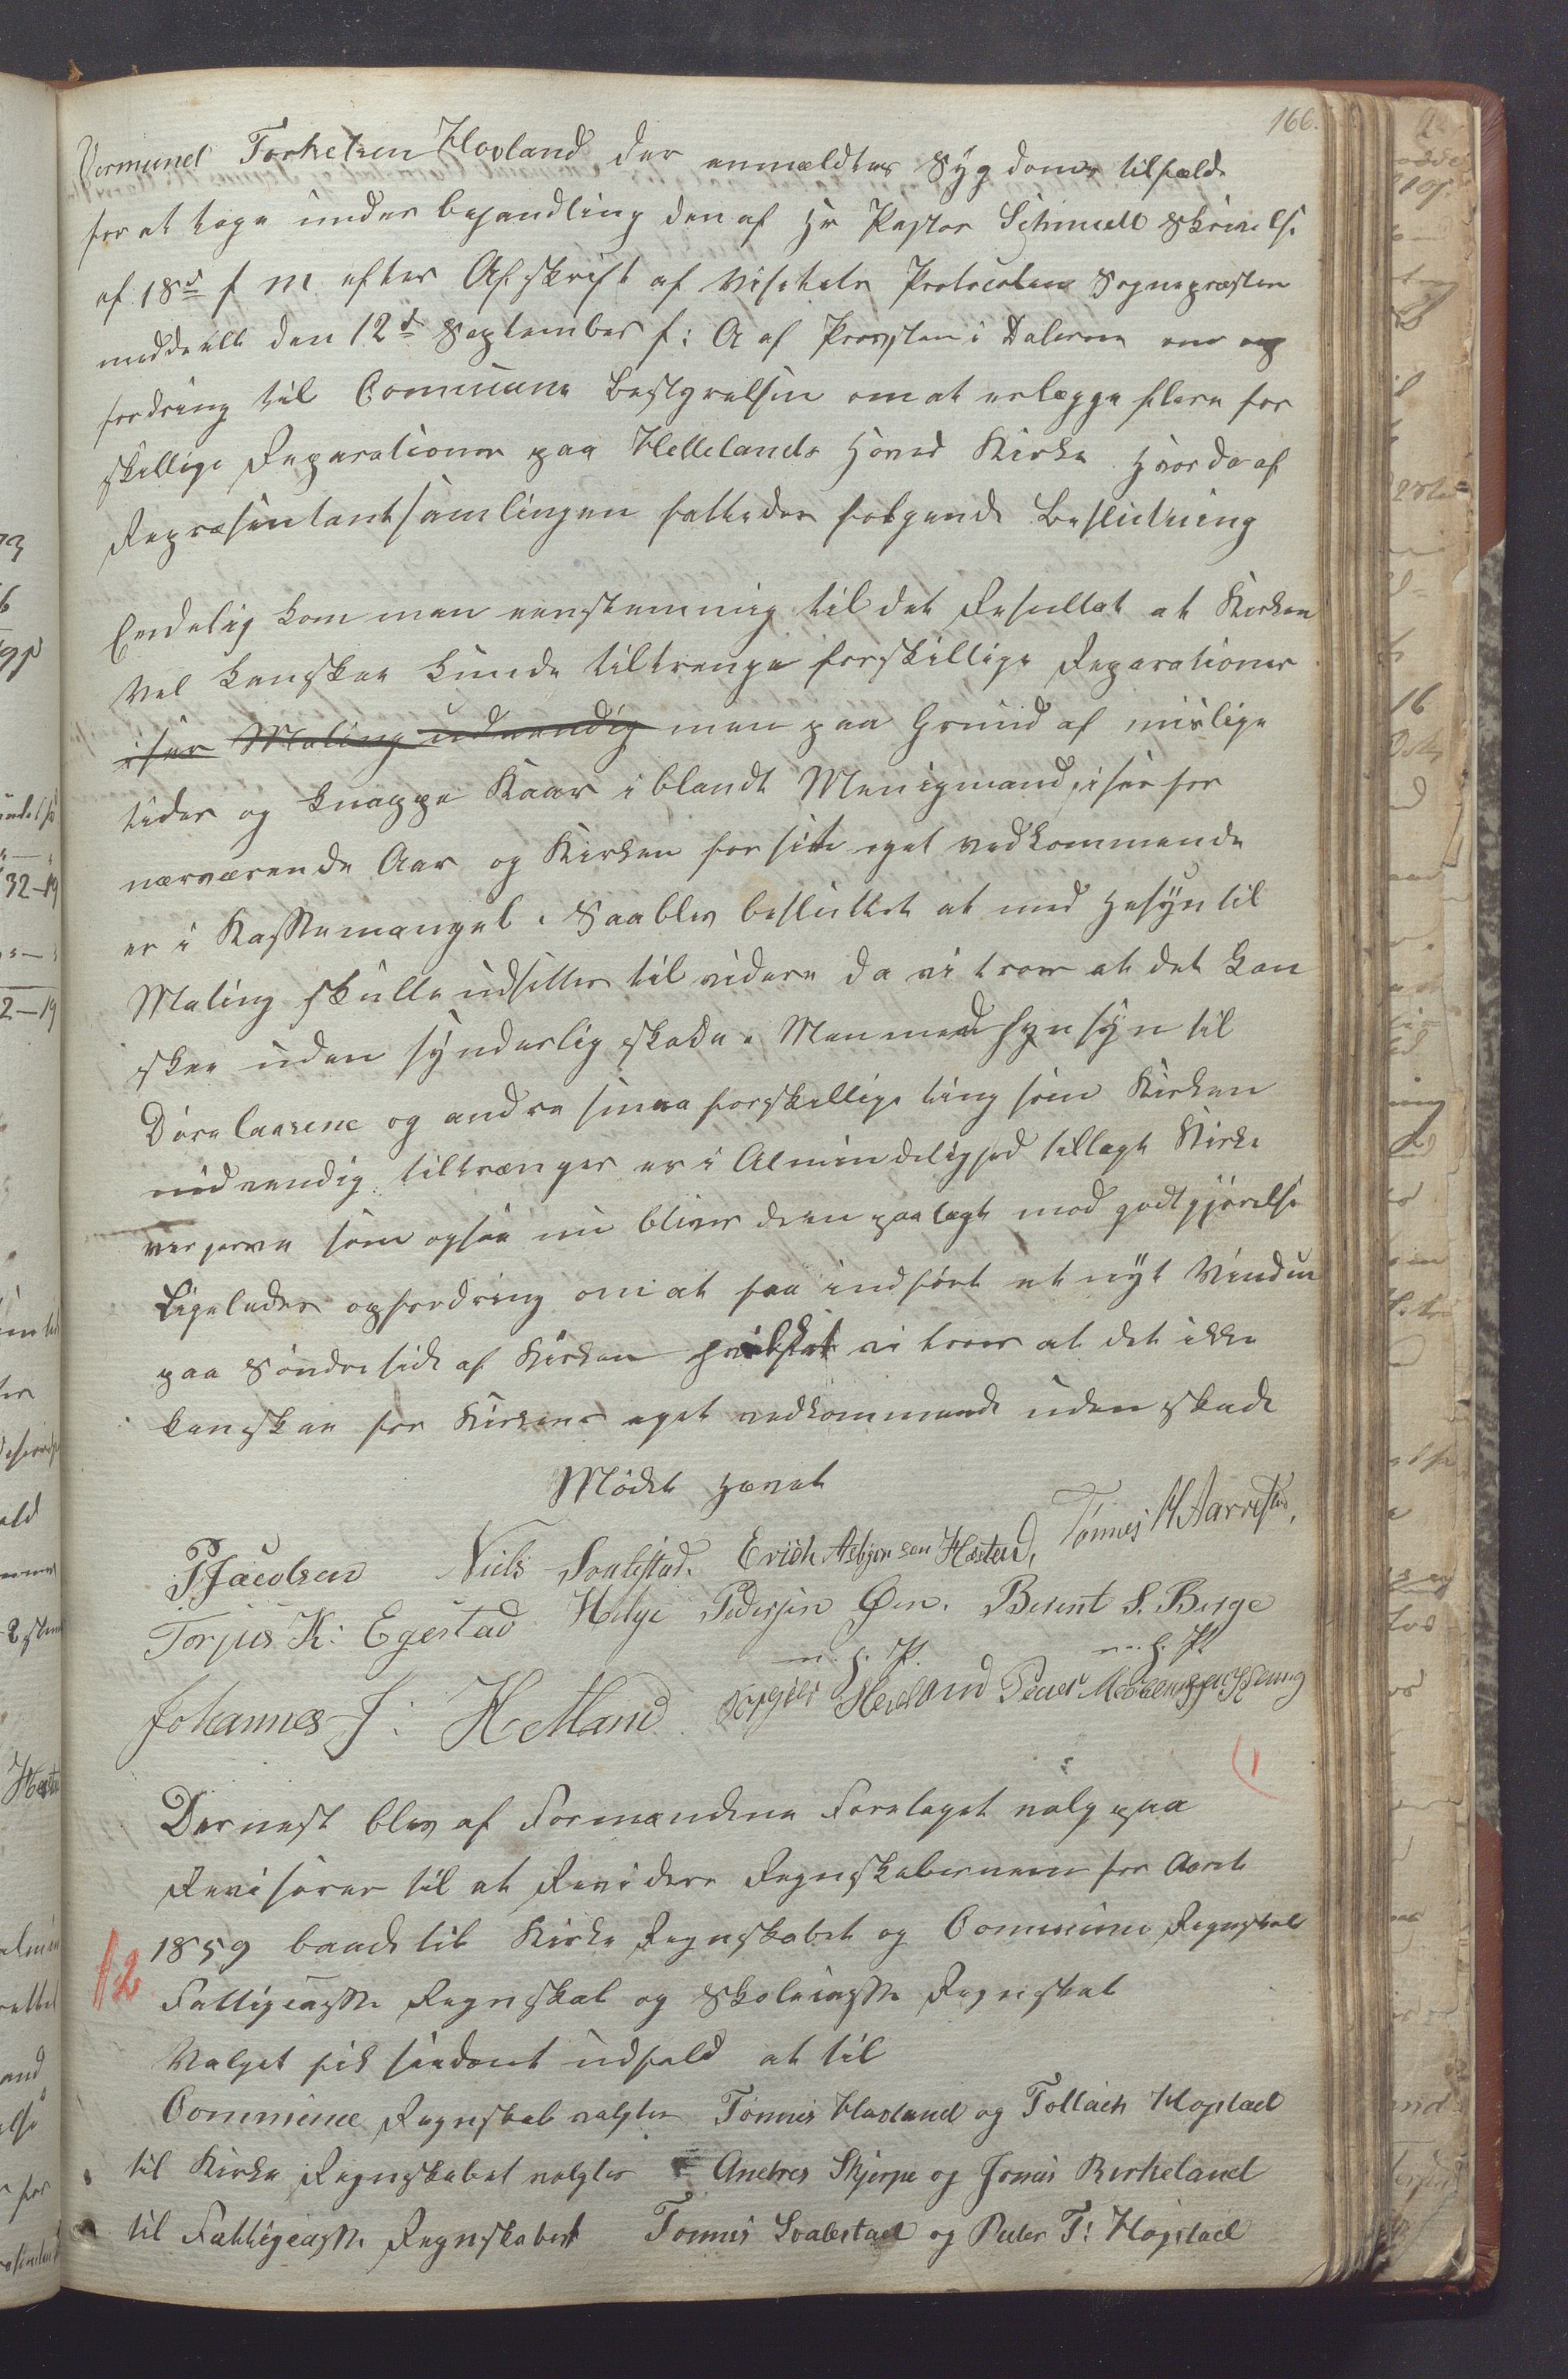 166.
Vermund Torkelsen Hovland der anmældtes Sygdoms tilfælde
for at tage under behandling den af Hr Pastor Schmidt Skrivelse
af 18de f m efter Afskrift af Visitats Protocolen Sognepræsten
meddeelt den 12te September f: A af Provsten i Dalerne om op
fordring til Commune Bestyrelsen om at erlægge flere for
skillige Reparationer paa Hellelands Hoved Kirke hvor da af
Repræsentantsamlingen fattedes følgende Beslutning
Endelig kom man eenstemmig til det Resultat at Kirken
vel kanskee kunde tiltrenge forskillige Reparationer
især Maling udvendig men paa Grund af mislige
tider og knappe Kaar iblandt Menigmand, især for
nærværende Aar og Kirken for sit eget vedkommende
er i Kassemangel. Saa blev besluttet at med Hesyn til
Maling skulle udsettes til videre da vi troer at det kan
skee uden synderlig skade. Men med hensyn til
Dørelaasene og andre smaa forskellige ting som Kirken
nødvendig tiltrænger er i Almindelighed tillagt Kirke
vergerne som ogsaa nu bliver dem paalagt mod godtgjørelse
Ligeledes opfordring om at faa indført et nyt Vindue
paa Søndre side af Kirken hvilket vi troer at det ikke
kan skee for Kirkens eget vedkommende uden skade
Mødet Hævet
P Jacobsen Niels Svalestad. Erich Asbjørnsen Hæstad, Tønnes H Aarrestad,
Torjus K: Egestad Helge Pedersen Øen. Berent S. Berge
m. h. P. m. h. P.
Johannes J: Hetland Torgils Hovland Peder
Dernest blev af Formændene Foretaget valg paa
Revisorer til at Revidere Regnskaberne for Aaret
12
1859 baade til Kirke Regnskabet og Commune Regnskab
Fattigcasse Regnskab og Skolecasse Regnskab
Valget fik saadant udfald at til
Commune Regnskab valgtes Tønnes Hovland og Tollach Hogstad
til Kirke Regnskabet valgtes Andres Skjerpe og Jonas Birkeland
til Fattigcasse Regnskabet Tønnes Svalestad og Peder T: Høgstad